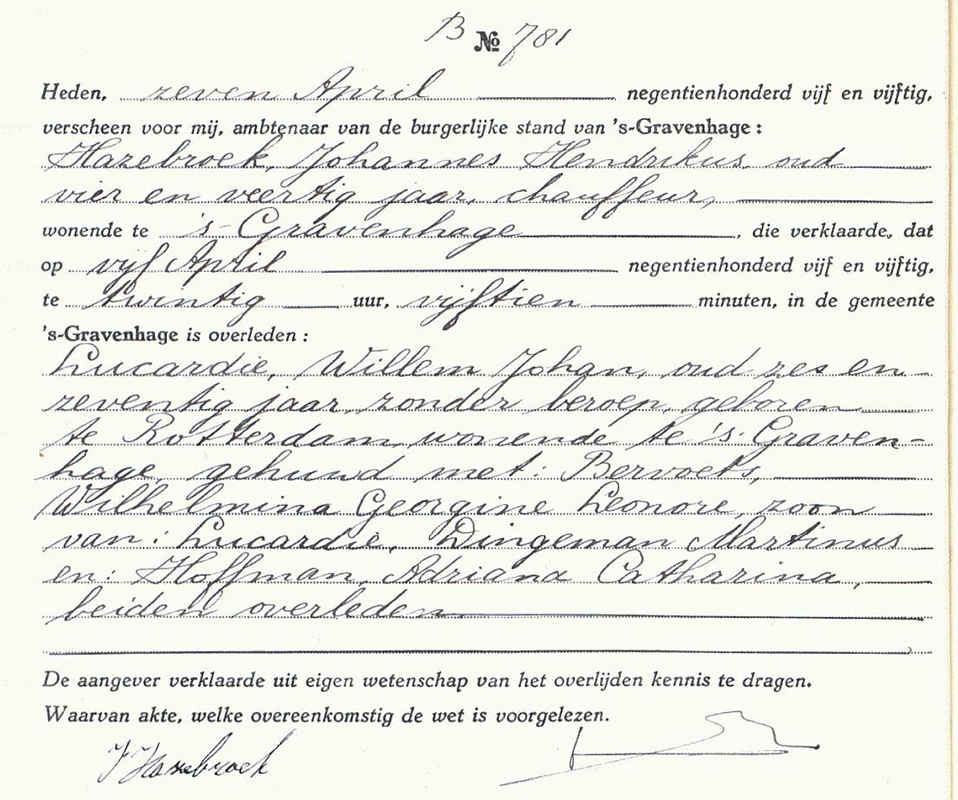 B № 781
Heden, zeven April negentienhonderd vijf en vijftig,
verscheen voor mij, ambtenaar van de burgerlijke stand van 's-Gravenhage:
Hazebroek, Johannes Hendrikus, oud
vier en veertig jaar, chauffeur,
wonende te 's-Gravenhage, die verklaarde, dat
op vijf April negentienhonderd vijf en vijftig,
te twintig uur, vijftien minuten, in de gemeente
's-Gravenhage is overleden:
Lucardie, Willem Johan, oud zes en-
zeventig jaar, zonder beroep, geboren
te Rotterdam, wonende te 's-Graven-
hage, gehuwd met: Bervoets,
Wilhelmina Georgine Leonore, zoon
van: Lucardie, Dingeman Martinus
en: Hoffman, Adriana Catharina,
beiden overleden.
De aangever verklaarde uit eigen wetenschap van het overlijden kennis te dragen.
Waarvan akte, welke overeenkomstig de wet is voorgelezen.
J Hazebroek